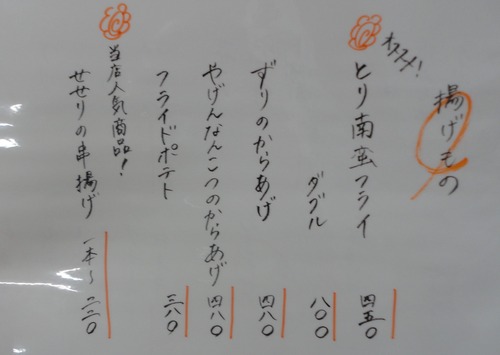 揚げもの
オススメ!
とり南蛮フライ 四五〇
ダブル 八〇〇
ずりのからあげ 四八〇
やげんなんこつのからあげ 四八〇
フライドポテト 三八〇
当店人気商品!
せせりの串揚げ 一本〜 二三〇